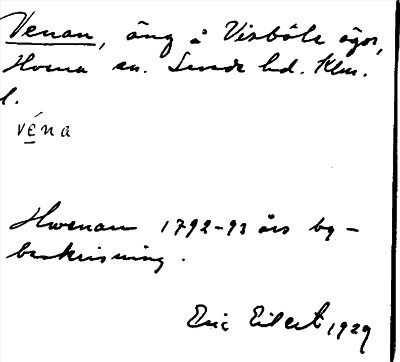 Venan, äng å Visböle ägor,
Hvena sn. Sevede hd. Klm.
l.
véna
Hwenan 1792-93 års by-
beskrivning.
Eric Eilert 1929